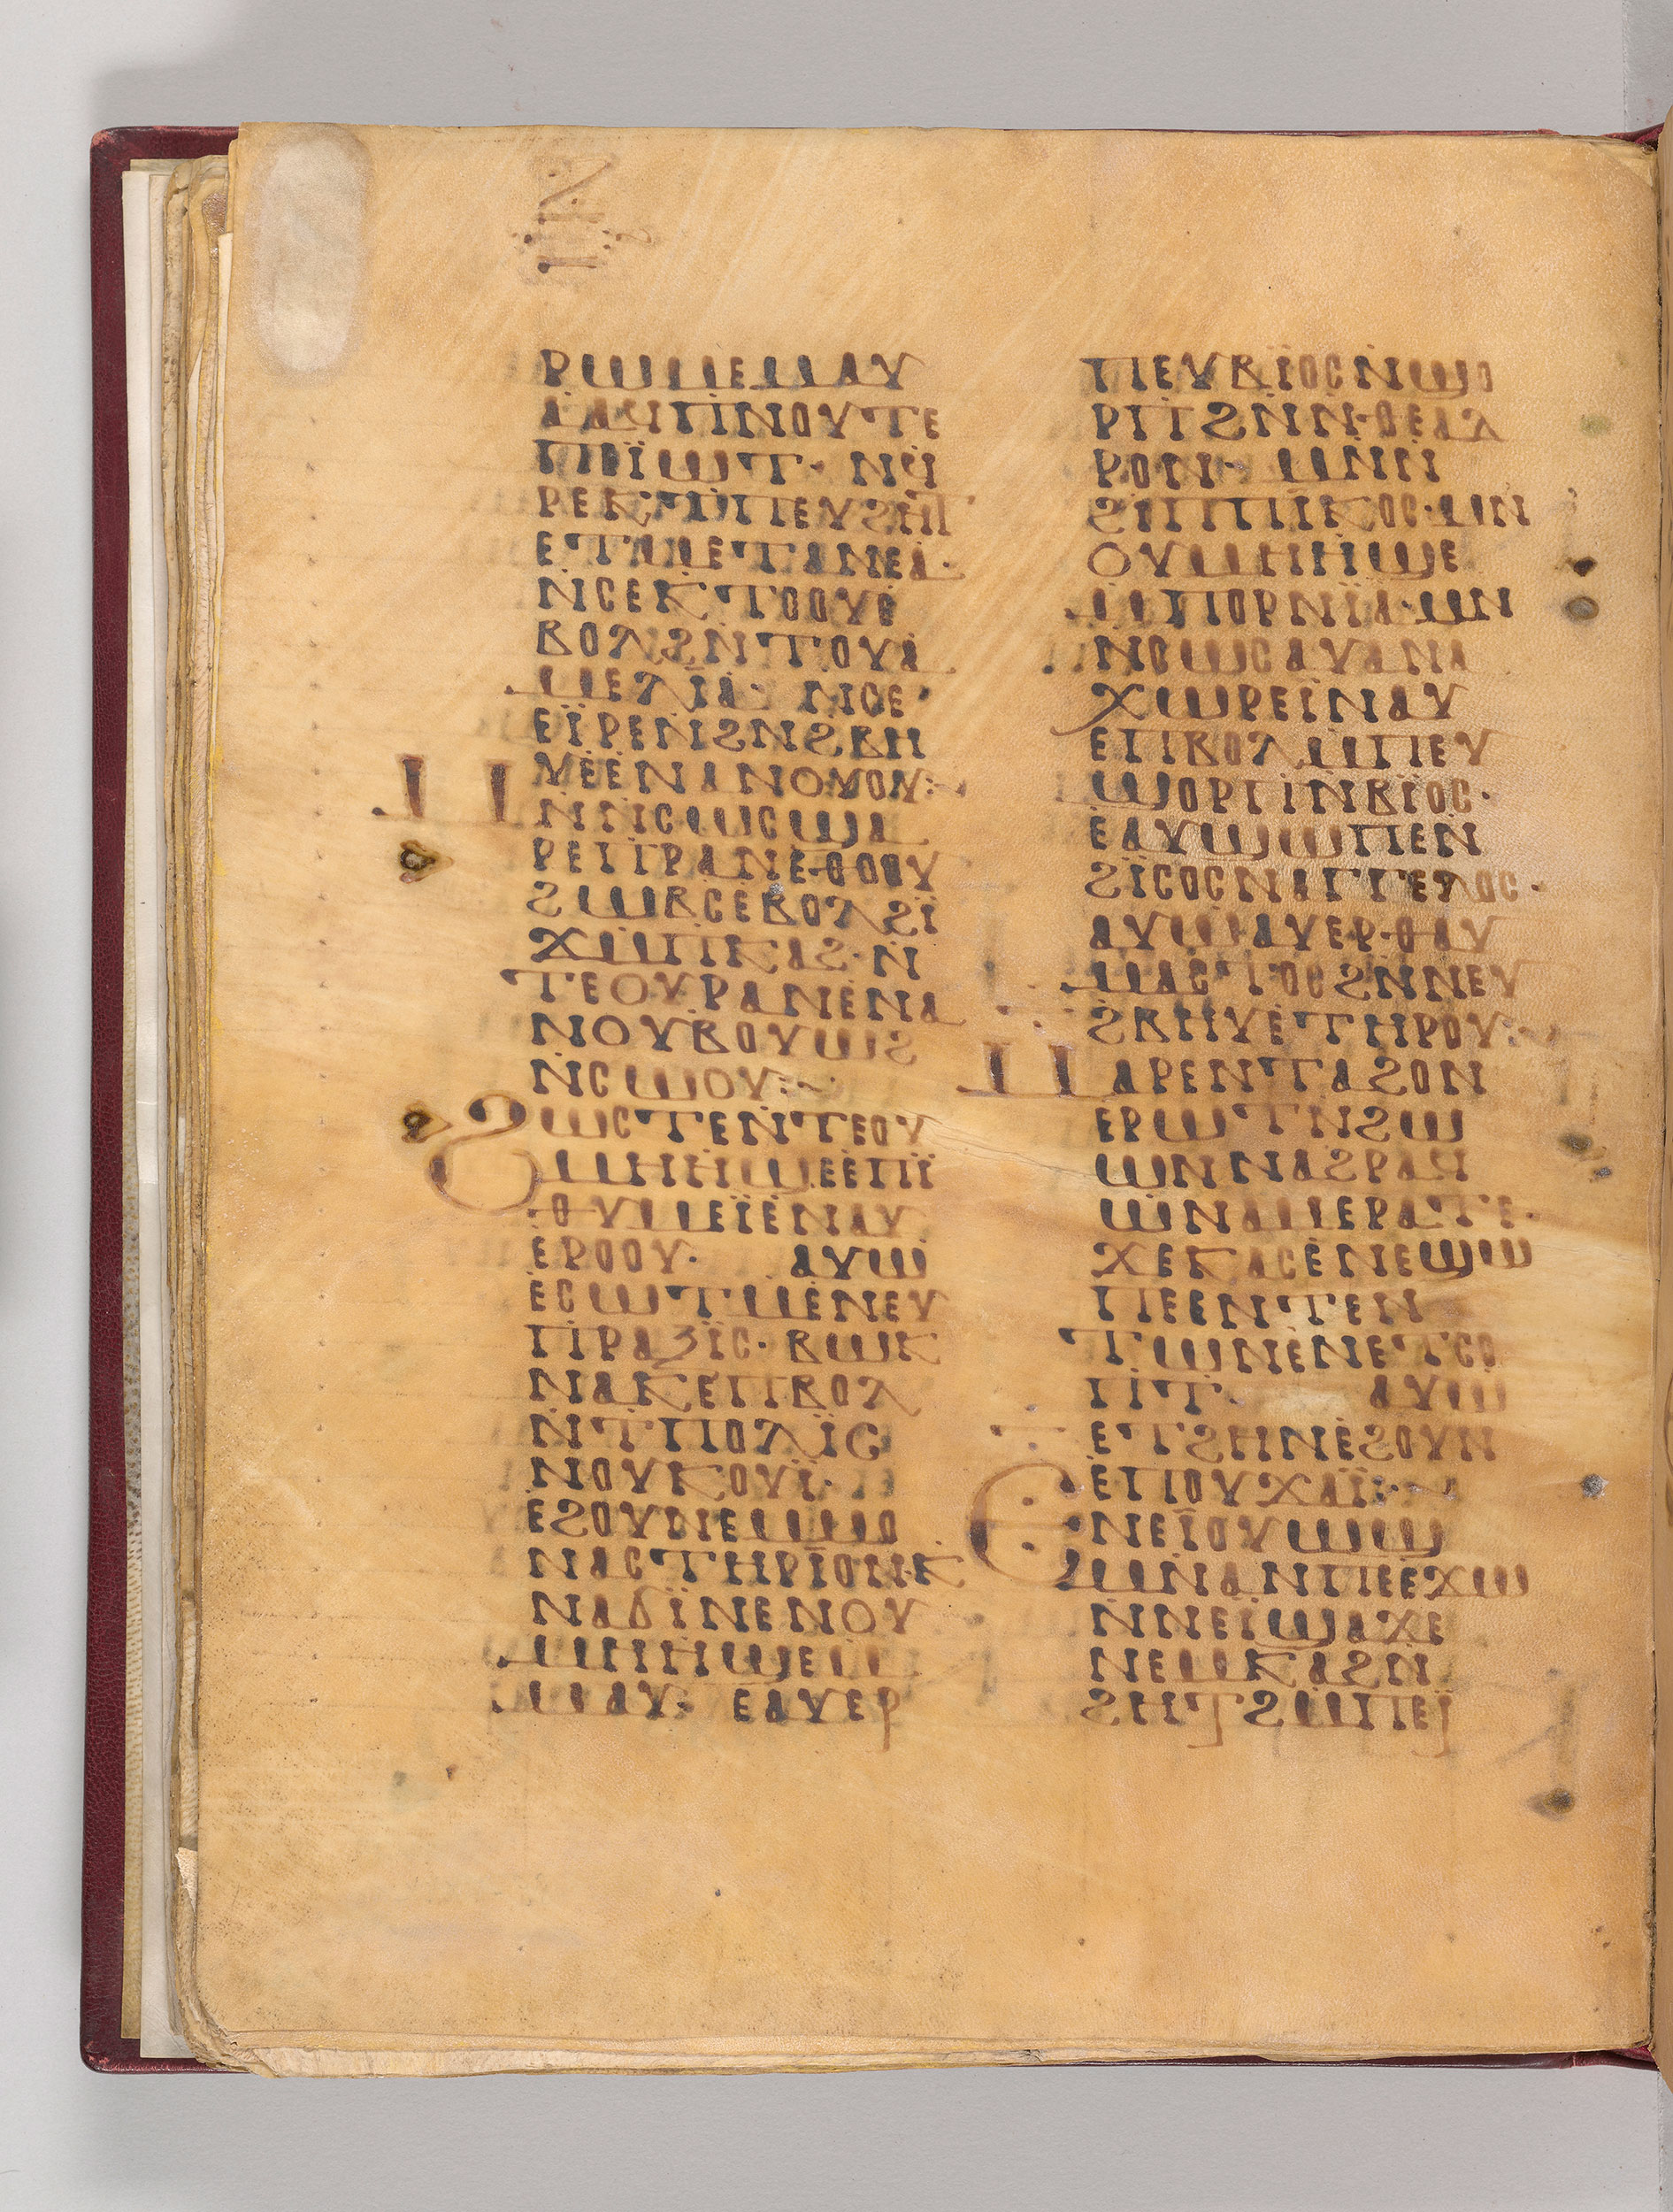 ⲣⲱⲙⲉⲙⲙⲁⲩ
ⲁⲁϥⲡⲓⲛⲟⲩⲧⲉ
ⲡⲉⲓ̈ⲱⲧ· ⲛϥ
ⲣⲉⲕⲧⲡⲉⲩϩⲏⲧ
ⲉⲧⲙⲉⲧⲁⲛⲉⲁ·
ⲛⲥⲉⲕⲧⲟⲟⲩⲉ
ⲃⲟⲗϩⲛⲧⲟⲩⲁ
ⲙⲉⲗⲓ̈ⲁ· ⲛⲥⲉ
ⲉⲓ̈ⲣⲉⲛϩⲛϩⲃⲏ
ⲩⲉⲉⲛⲁⲛⲟⲩⲟⲩ:~
ⲙⲛⲛⲥⲱⲥϣⲁ
ⲣⲉⲡⲣⲁⲛⲉⲑⲟⲟⲩ
ϩⲱⲃⲥⲉⲃⲟⲗϩⲓ̈
ϫⲙⲡⲕⲁϩ·ⲛ
ⲧⲉⲟⲩⲣⲁⲛⲉⲛⲁ
ⲛⲟⲩⲃⲟⲩⲱϩ
ⲛⲥⲱⲟⲩ:~
ϩⲱⲥⲧⲉⲛⲧⲉⲟⲩ
ⲙⲏⲏϣⲉⲉⲡⲓ̈
ⲑⲩⲙⲉⲓ̈ⲉⲛⲁⲩ
ⲉⲣⲟⲟⲩ· ⲁⲩⲱ
ⲉⲥⲱⲧⲙⲉⲛⲉⲩ
ⲡⲣⲁⲝⲓ̈ⲥ· ⲃⲱⲕ
ⲛⲁⲕⲉⲡⲃⲟⲗ
ⲛⲧⲡⲟⲗⲓ̈ⲥ
ⲛⲟⲩⲕⲟⲩⲓ̈·
ⲉϩⲟⲩⲛⲉⲙⲙⲟ
ⲛⲁⲥⲧⲏⲣⲓ̈ⲟⲛ·ⲕ
ⲛⲁϭⲓ̈ⲛⲉⲛⲟⲩ
ⲙⲏⲏϣⲉⲙ
ⲙⲁⲩ· ⲉⲁⲩⲉⲣ
ⲡⲉⲩⲃⲓ̈ⲟⲥⲛϣⲟ
ⲣⲡ̄ϩⲛⲛ·ⲑⲉⲁⲇ
ⲣⲟⲛ· ⲙⲛⲛ
ϩⲓⲡⲡⲓ̈ⲕⲟⲥ·ⲙⲛ
ⲟⲩⲙⲏⲏϣⲉ
ⲙⲡⲟⲣⲛⲓ̈ⲁ·ⲙⲛ
ⲛⲥⲱⲥⲁⲩⲁⲛⲁ
ⲭⲱⲣⲉⲓ̈ⲛⲁⲩ
ⲉⲡⲃⲟⲗⲙⲡⲉⲩ
ϣⲟⲣⲡⲛⲃⲓ̈ⲟⲥ·
ⲉⲁⲩϣⲱⲡⲉⲛ
ϩⲓ̈ⲥⲟⲥⲛⲁⲅⲅⲉⲗⲟⲥ·
ⲁⲩⲱⲁⲩⲉⲣ·ⲑⲁⲩ
ⲙⲁⲥⲧⲟⲥϩⲛⲛⲉⲩ
ϩⲃⲏⲩⲉⲧⲏⲣⲟⲩ:~
ⲙⲁⲣⲉⲛⲧⲁϩⲟⲛ
ⲉⲣⲱⲧⲛϩⲱ
ⲱⲛⲛⲁϩⲣⲁϥ
ϣⲛⲁⲙⲉⲣⲁⲧⲉ·
ϫⲉⲕⲁⲥⲉⲛⲉϣⲱ
ⲡⲉⲉⲛⲧⲉⲛ
ⲧⲱⲛⲉⲛⲉⲧⲥⲟ
ⲧⲡ· ⲁⲩⲱ
ⲉⲧϩⲏⲛⲉϩⲟⲩⲛ
ⲉⲡⲟⲩϫⲁⲓ̈:~
ⲉⲛⲉⲓ̈ⲟⲩⲱϣ
ⲙⲛⲁⲛⲡⲉⲉϫⲱ
ⲛⲛⲉⲓ̈ϣⲁϫⲉ
ⲛⲉⲙⲕⲁϩⲛ
ϩⲏⲧϩⲙⲡⲉⲓ̈